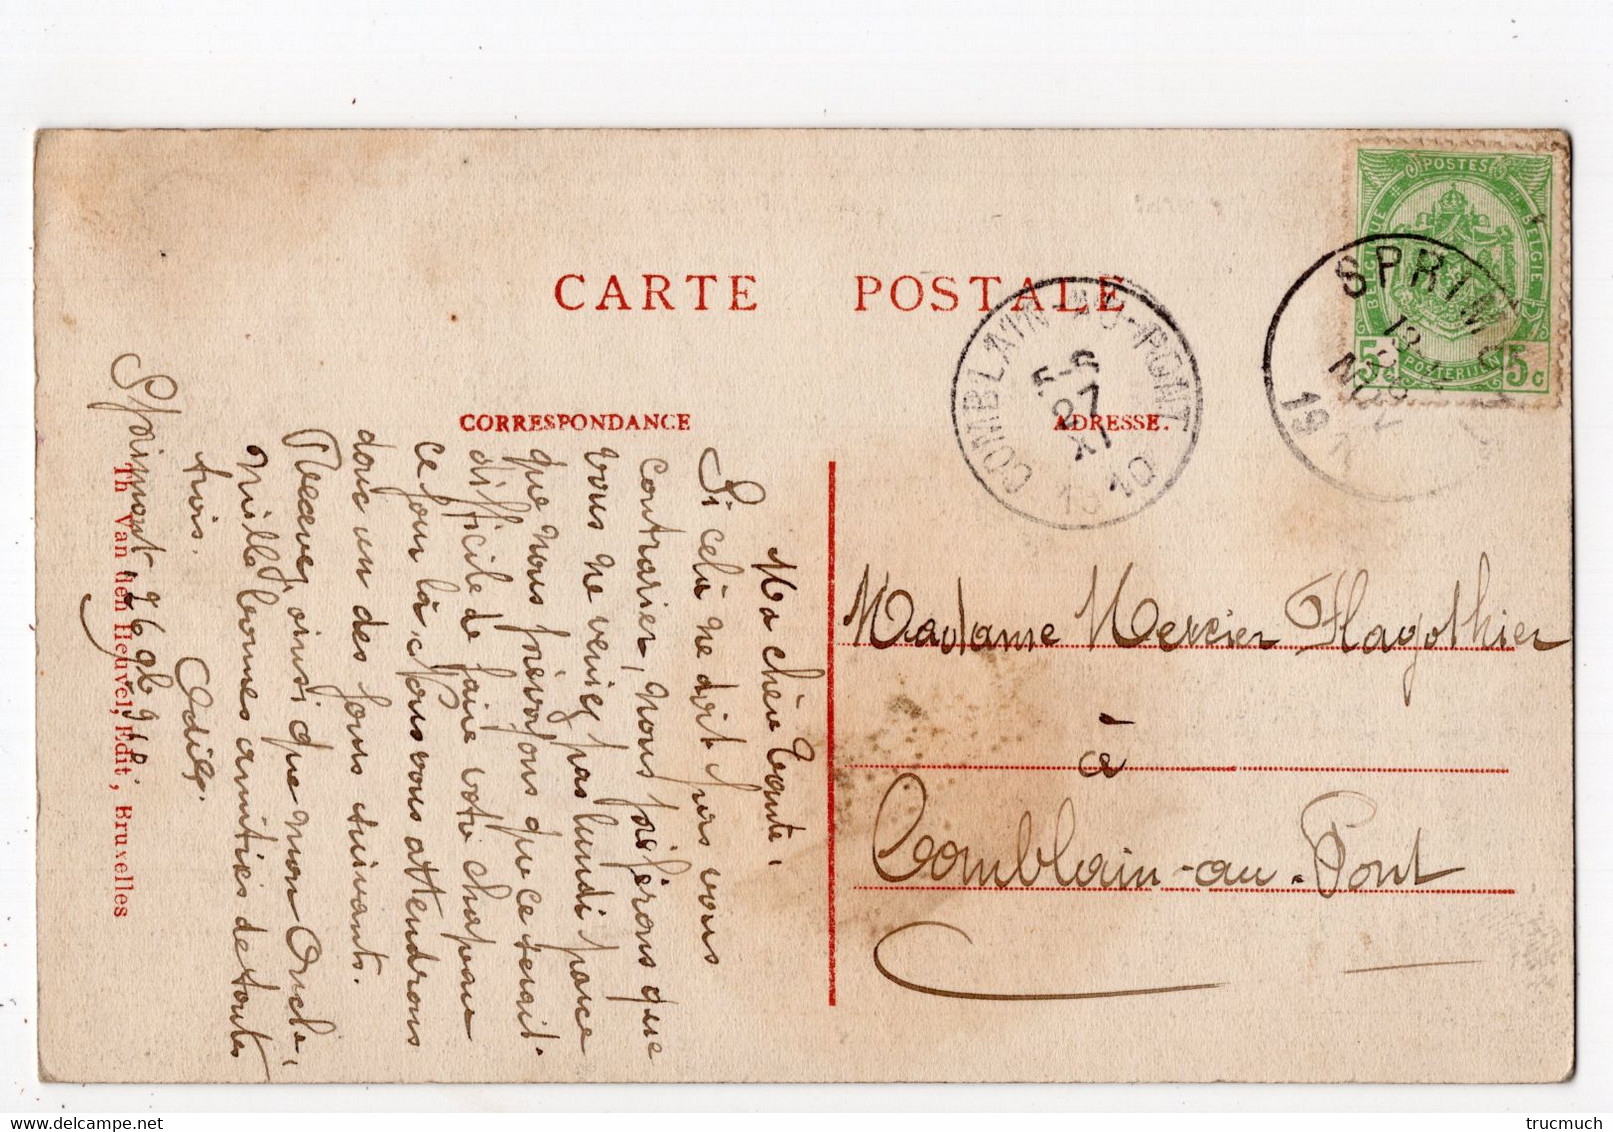 CARTE POSTALE
CORRESPONDANCE
ADRESSE.
POSTES
BELGIQUE
BELGIE
5c POSTERIJEN 5c
SPRIMONT
26
NOV
19
COMBLAIN-AU-PONT
5-6
27
XI
1910
Ma chère Tante,
Si celà ne doit pas vous
contrarier, nous préférons que
vous ne veniez pas lundi parce
que nous prévoyons que ce serait
difficile de faire votre chapeau
ce jour là. Nous vous attendrons
donc un des jours suivants.
Recevez ainsi que mon Oncle,
mille bonnes amitiés de toutes
trois.
Odile.
Sprimont
Th. Van den Heuvel, Edit., Bruxelles
Madame Mercier Flagothier
à
Comblain-au-Pont
www.delcampe.net
trucmuch